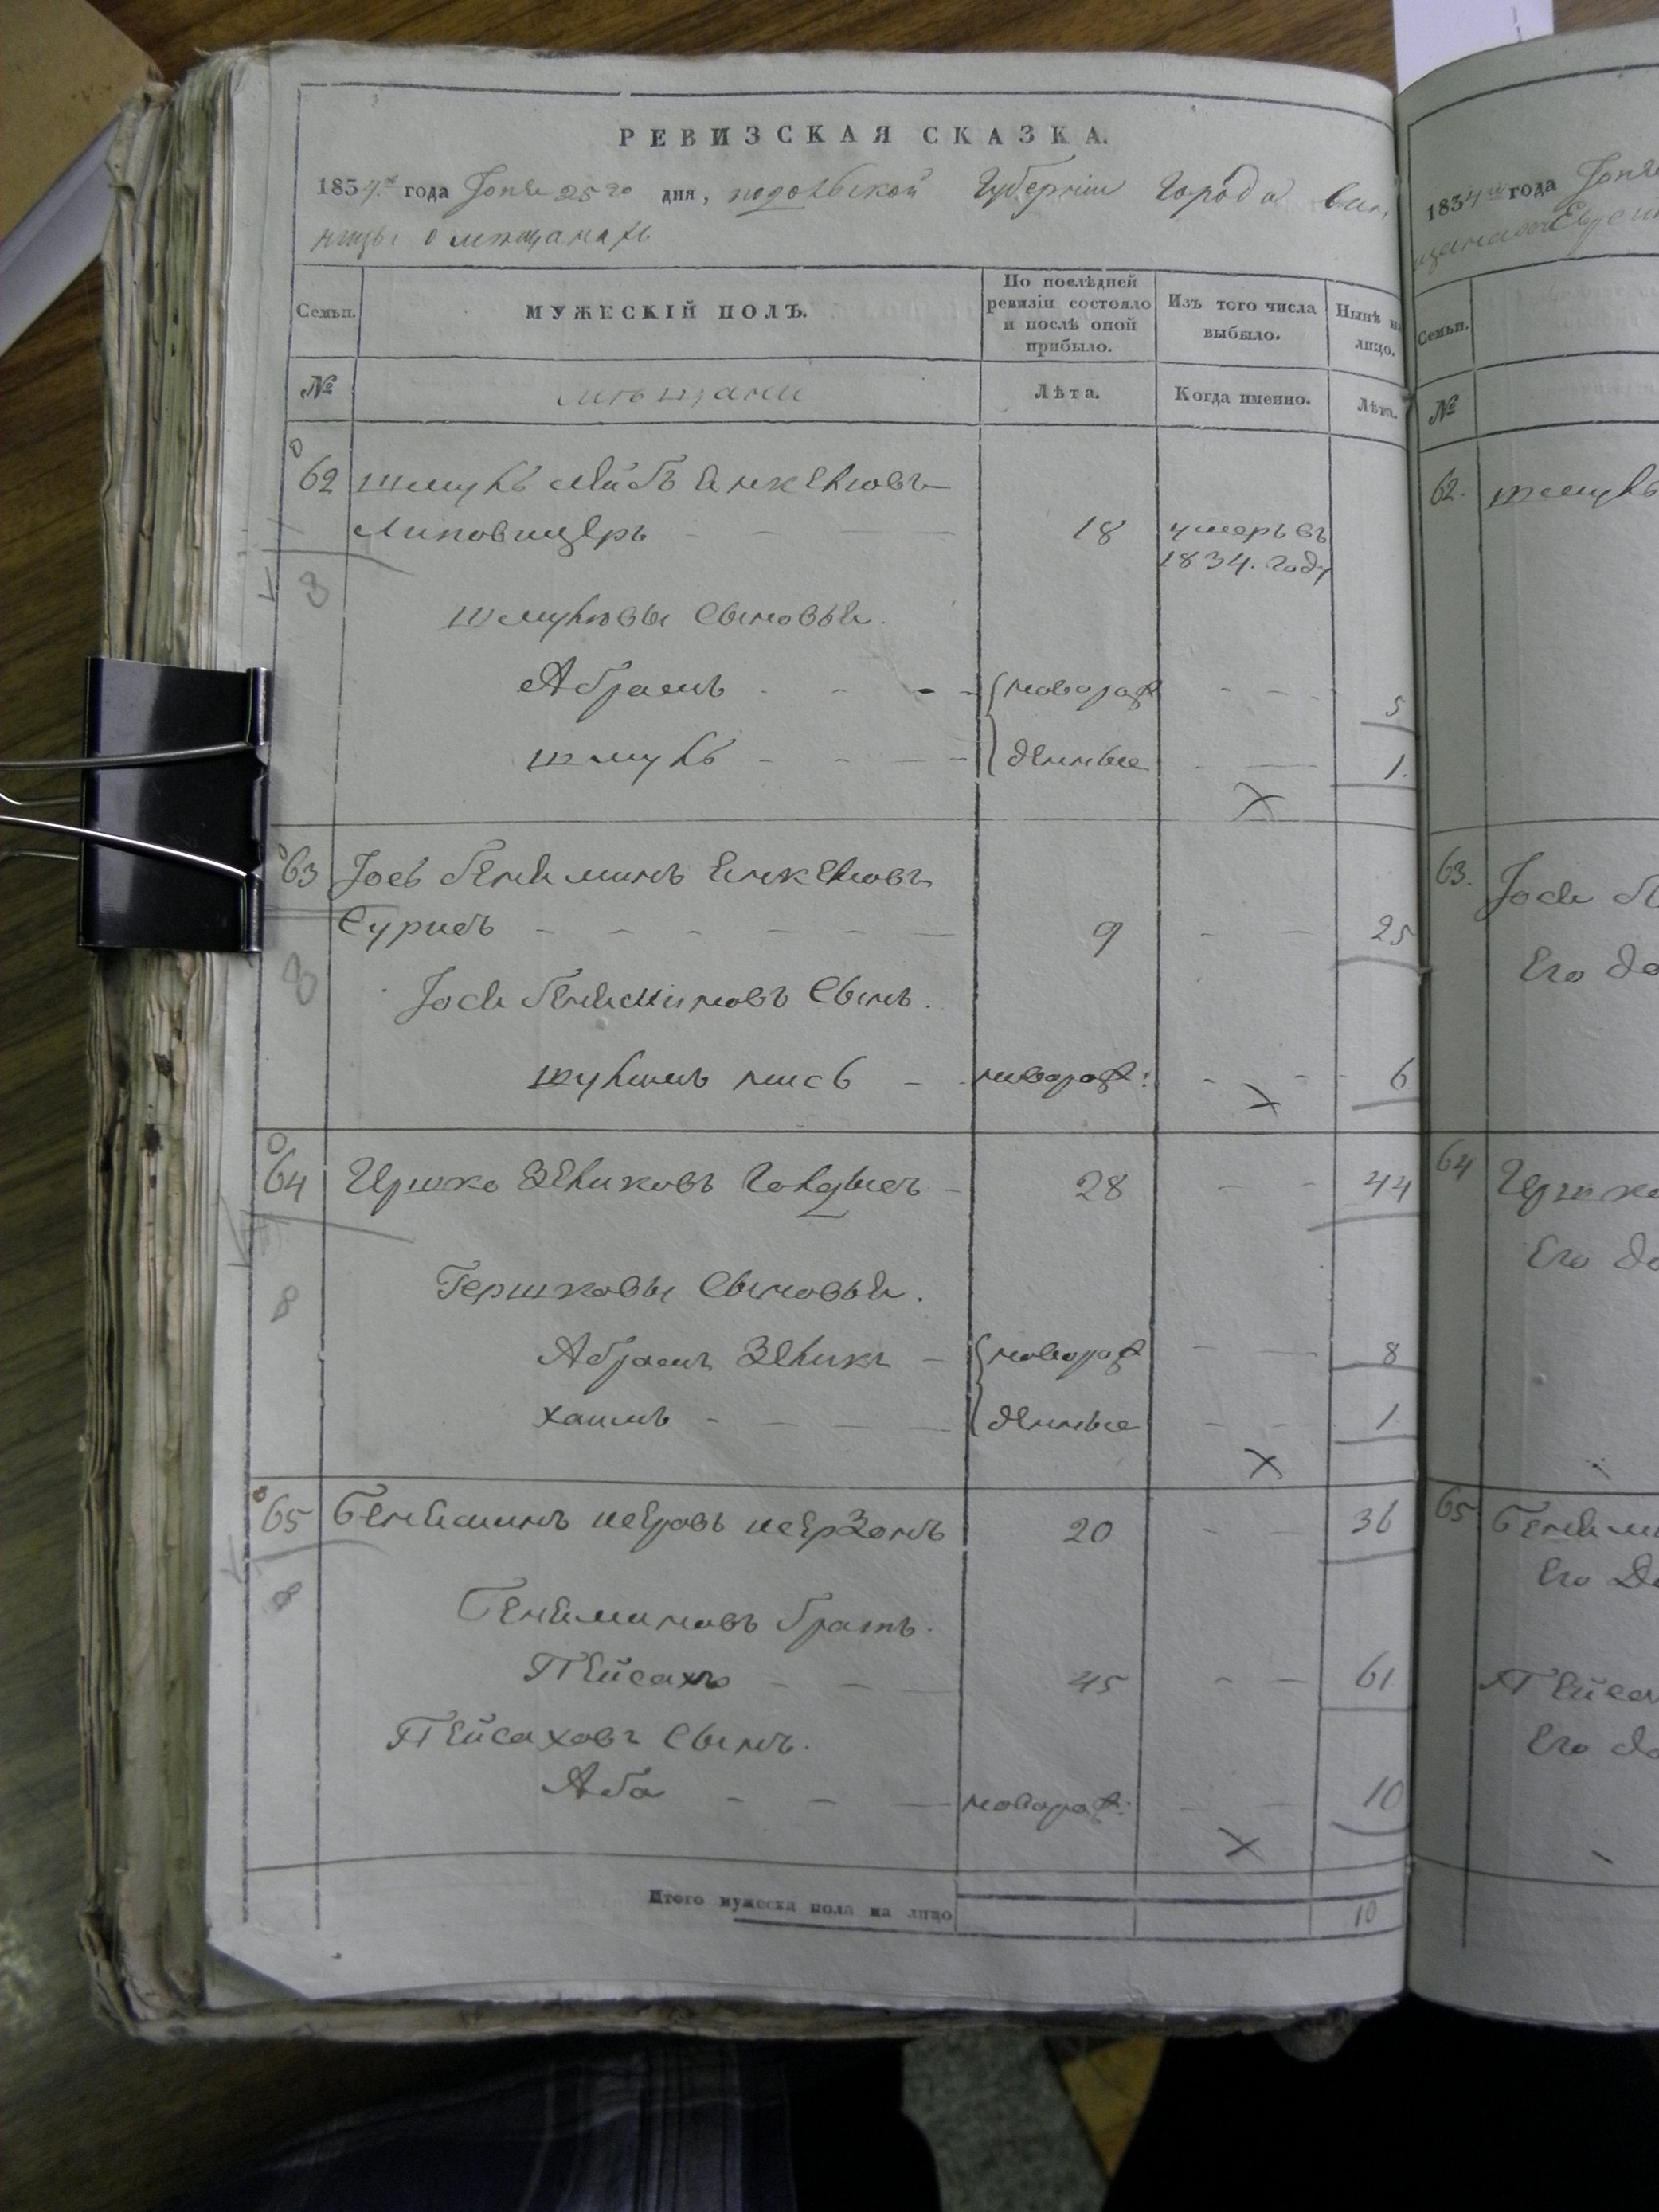 РЕВИЗСКАЯ СКАЗКА.
1834го года Іюня 25го дня, подольской Губерніи Города вин,
ницы о мещанахъ
Семьи.
МУЖЕСКІЙ ПОЛЪ.
По послѣдней ревизіи состояло и послѣ оной прибыло.
Изъ того числа выбыло.
Нынѣ на лицо.
№
мѣщане
Лѣта.
Когда именно.
Лѣта.
62 шмуль лейбъ
Липовецеръ - - 18 умеръ въ
1834. году
8
шмулевы сыновья.
Абрамъ - - - новорож - - 5
шмуль - - - денные - - 1.
63 Іось бениминъ
Сурисъ - - - 9 - - 25
8
Іося бениминовъ сынъ.
- новорож: - - 6
64 Гершко Зеликовъ - 28 - - 44
8
Гершковы сыновья.
Абрамъ Зеликъ - новорож - - 8
хаимъ - - - денные - - 1
65 бениминъ мееровъ меерзонъ 20 - - 36
8
бениминовъ братъ.
Пейсахъ - - - 45 - - 61
Пейсаховъ сынъ.
Аба - - - новорож: - - 10
Итого мужеска пола на лицо 10
1834го года Іюня
Семьи.
№
62. шмуль
63. Іося
Его
64 Гершко
Его
65 беними
Его
Пейсах
Его